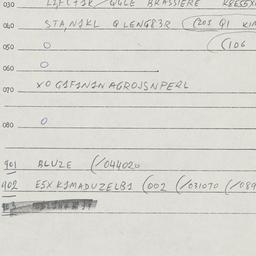 030 BRASSIERE
040 STA,N1KL Q LENG83R (201 Q1
050 O (106
060 O
070 X0 G1F1N1N AGROJSNPERL
080 O
901 BLUZE (/044020
902 E5X K1MADUZELB1 (002 (/031070 (/089